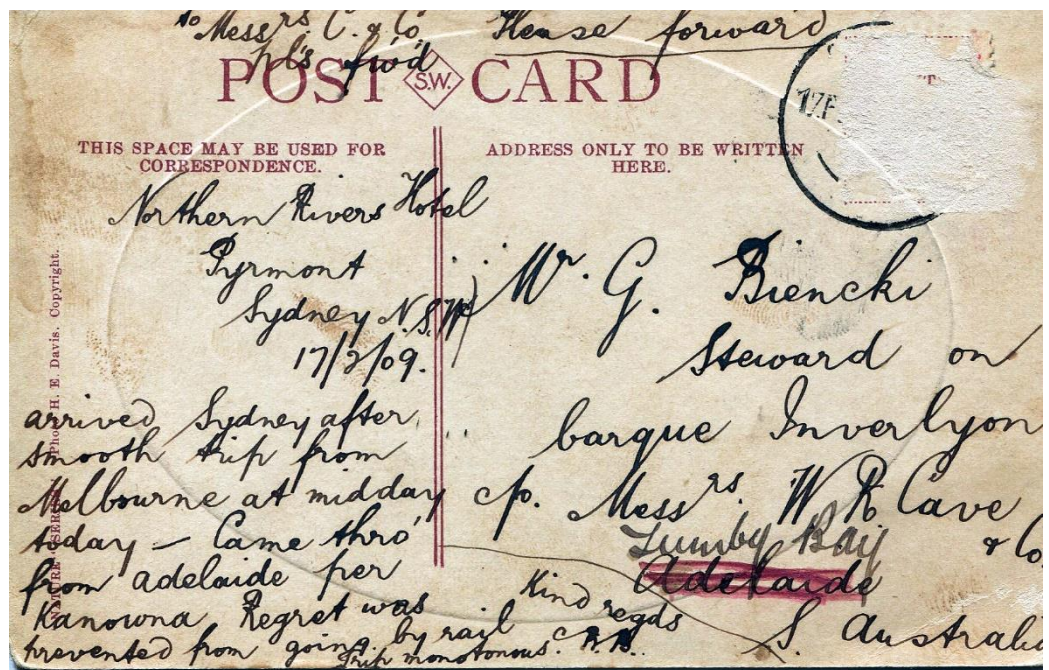 to Messrs. C. & Co. Please forward
pl's fwd
POST S.W. CARD
THIS SPACE MAY BE USED FOR
CORRESPONDENCE.
ADDRESS ONLY TO BE WRITTEN
HERE.
17F
Northern Rivers Hotel
Pyrmont
Sydney N.S.W
17/2/09.
arrived Sydney after
smooth trip from
Melbourne at midday
today – Came thro'
from adelaide per
Kanowna Regret was
prevented from going by rail
trip monotonous.
Kind regds
Mr. G. Biencki
Steward on
barque Inverlyon
c/o. Messrs. W R Cave
& Co.
Tumby Bay
Adelaide
S. Australia
Photo H. E. Davis. Copyright.